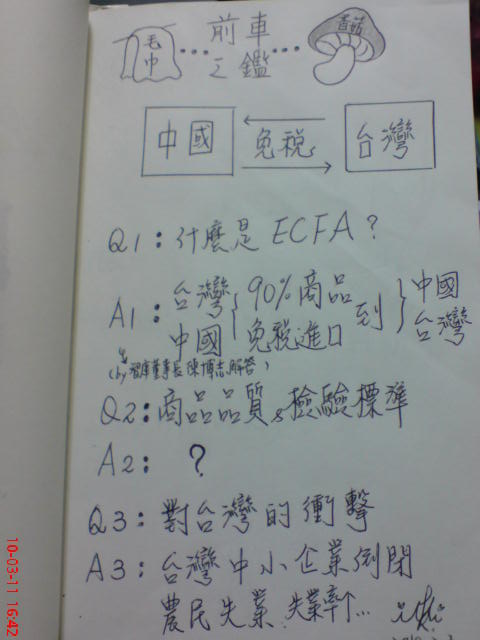 毛巾…前車之鑑…香菇
中國 免稅 台灣
Q1:什麼是ECFA?
A1:台灣 中國 { 90%商品 免稅進口 到 } 中國 台灣
(by 智庫董事長陳博志解答)
Q2:商品品質&檢驗標準
A2: ?
Q3:對台灣的衝擊
A3:台灣中小企業倒閉
農民失業.失業率个…
10-03-11 16:42